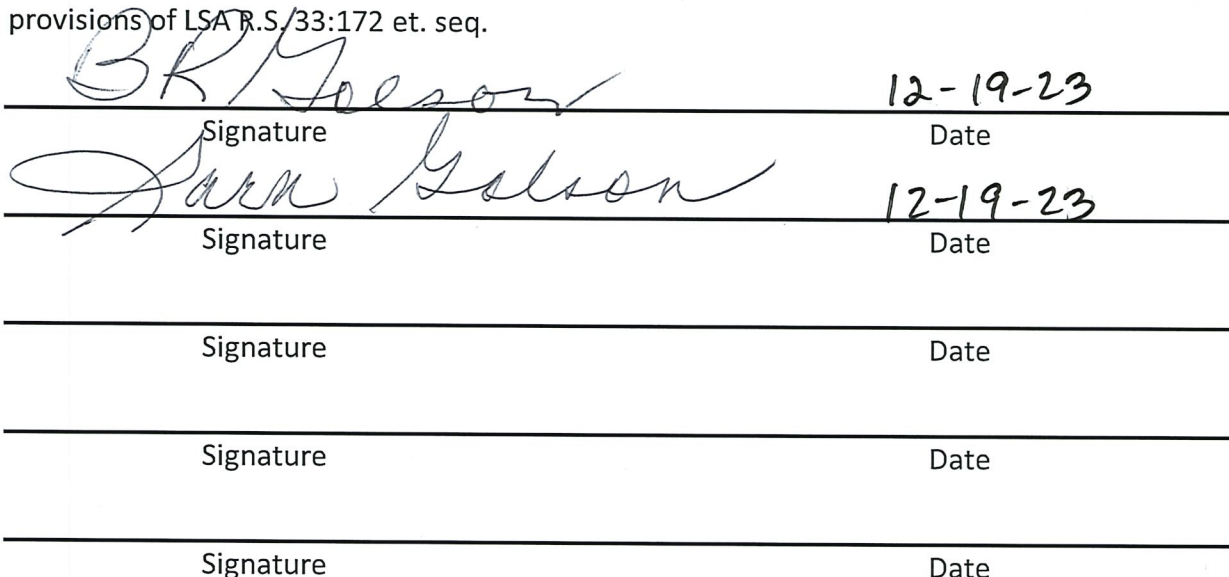 provisions of LSA R.S. 33:172 et. seq.
BR Golson 12-19-23
Signature Date
Sara Golson 12-19-23
Signature Date
Signature Date
Signature Date
Signature Date